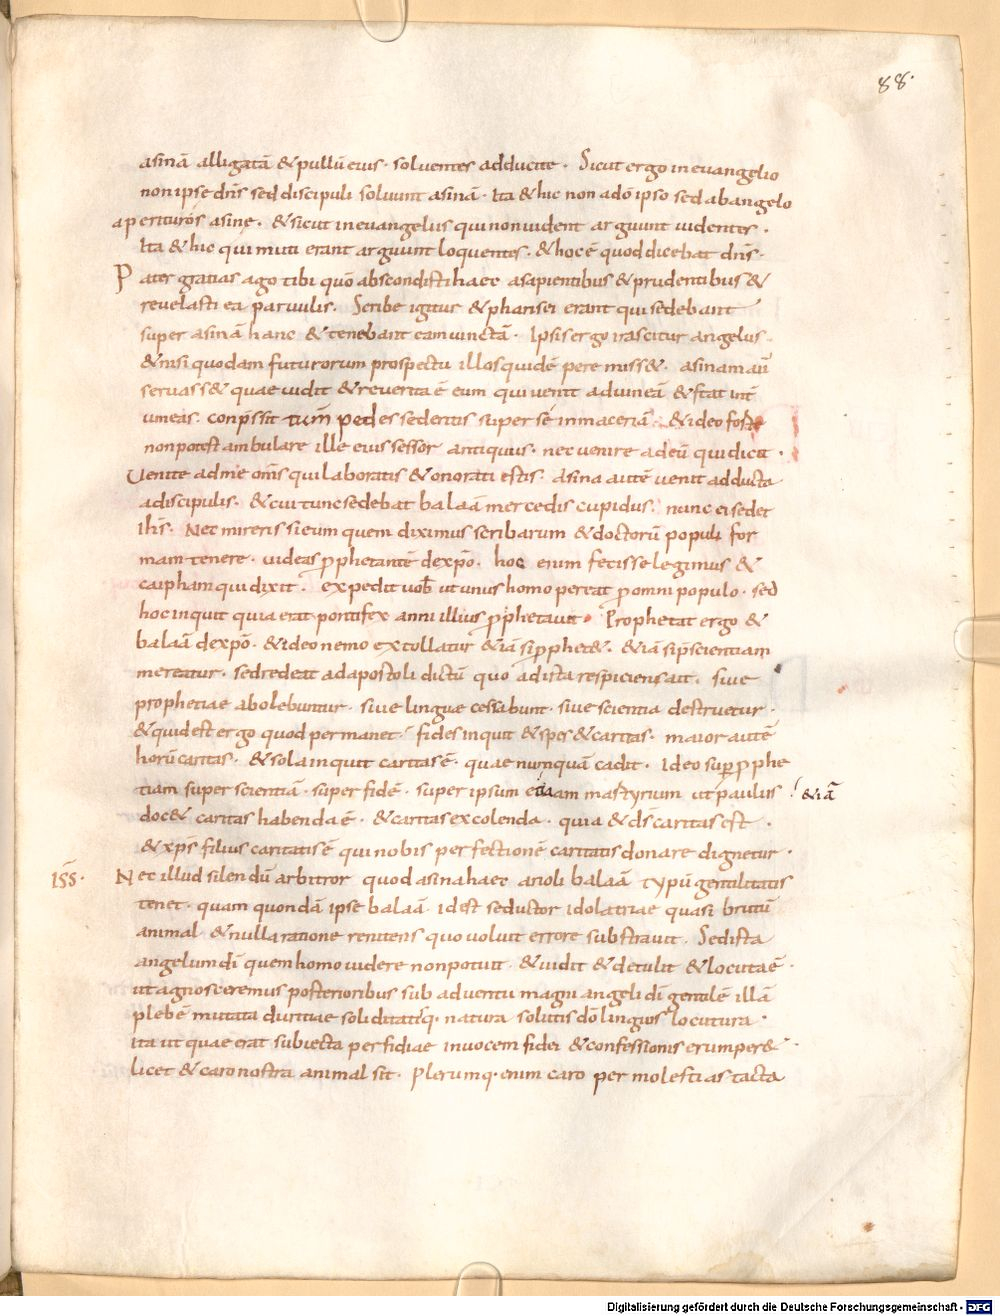 88.
asinā alligatā & pullū eius · soluentes adducite · Sicut ergo in euangelio
non ipse dn̄s sed discipuli soluunt asinā · Ita & hic non a dō ipso sed ab angelo
aperitur os asinę · & sicut in euangeliis qui non uident arguunt uidentes ·
Ita & hic qui muti erant arguunt loquentes · & hoc ē quod dicebat dn̄s ·
Pater gratias ago tibi quō abscondisti haec a sapientibus & prudentibus &
reuelasti ea paruulis · Scribe igitur & pharisei erant qui sedebant
super asinā hanc & tenebant eam uinctā · Ipsis ergo irascitur angelus
& nisi quodam futurorum prospectu illos quidē peremiss& · asinam aū
seruass& quae uidit & reuerita ē eum qui uenit ad uineā & stat int̄
uineas · conp̄ssit pedes sedentis super se in maceriā & ideo
non potest ambulare ille eius sessor antiquus · nec uenire ad eū qui dicit ·
Uenite ad me om̄s qui laboratis & onorati estis · asina autē uenit adducta
a discipulis · & cui tunc sedebat balaā mercedis cupidus · nunc ei sedet
ih̄s · Nec mireris si eum quem diximus scribarum & doctorū populi for
mam tenere · uideas ꝓphetantē de xp̄o · hoc enim fecisse legimus &
caipham qui dixit · expedit uob̄ ut unus homo pereat ꝓ omni populo · sed
hoc inquit quia erat pontifex anni illius ꝓphetauit · Prophetat ergo &
balaā de xp̄o · & ideo nemo extollatur &iā si ꝓphet& · &iā si p̄scientiam
mereatur · sed redeat ad apostoli dictū quo ad ista respiciens ait · siue
prophetiae abolebuntur · siue linguae cessabunt · siue scientia destruetur ·
& quid est ergo quod permanet · fides inquit & spes & caritas · maior autē
horū caritas · & sola inquit caritas ē · quae numquā cadit · Ideo sup̱ ꝓphe
tiam super scientiā · super fidē · super ipsum &iā martyrium ut paulus
doc& caritas habenda ē · & caritas excolenda · quia & d̄s caritas est ·
& xp̄s filius caritatis ē qui nobis perfectionē caritatis donare dignetur ·
ISS̄ · Nec illud silendū arbitror quod asina haec arioli balaā typū gentilitatis
tenet · quam quondā ipse balaā id est seductor idolatriae quasi brutū
animal & nulla ratione renitens quo uoluit errore substrauit · Sed ista
angelum dī quem homo uidere non potuit · & uidit & detulit & locuta ē ·
ut agnosceremus posterioribus sub aduentu magni angeli dī gentilē illā
plebē mutata duritiae soliditatisq · natura solutis dō linguis locutura ·
ita ut quae erat subiecta perfidiae in uocem fidei & confessionis erumper& ·
licet & caro nostra animal sit · Plerumq · enim caro per molestias tacta
Digitalisierung gefördert durch die Deutsche Forschungsgemeinschaft · DFG